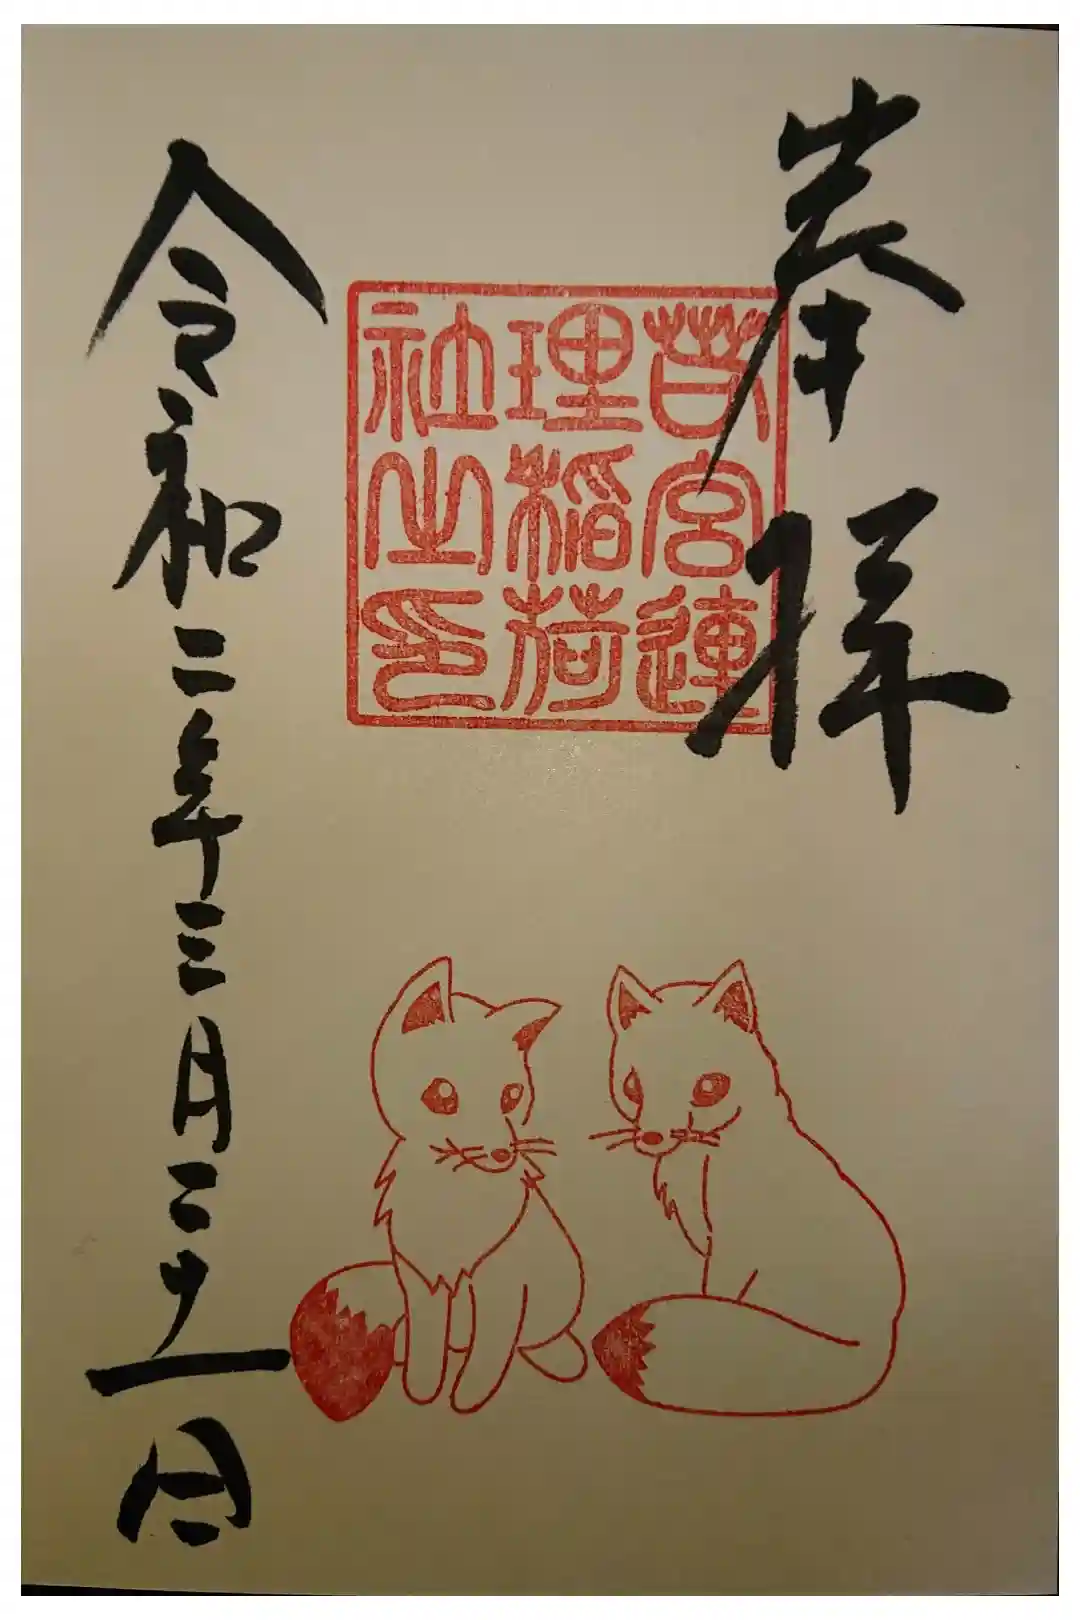 奉拝
若宮連
理稲荷
社之印
令和二年三月二十一日